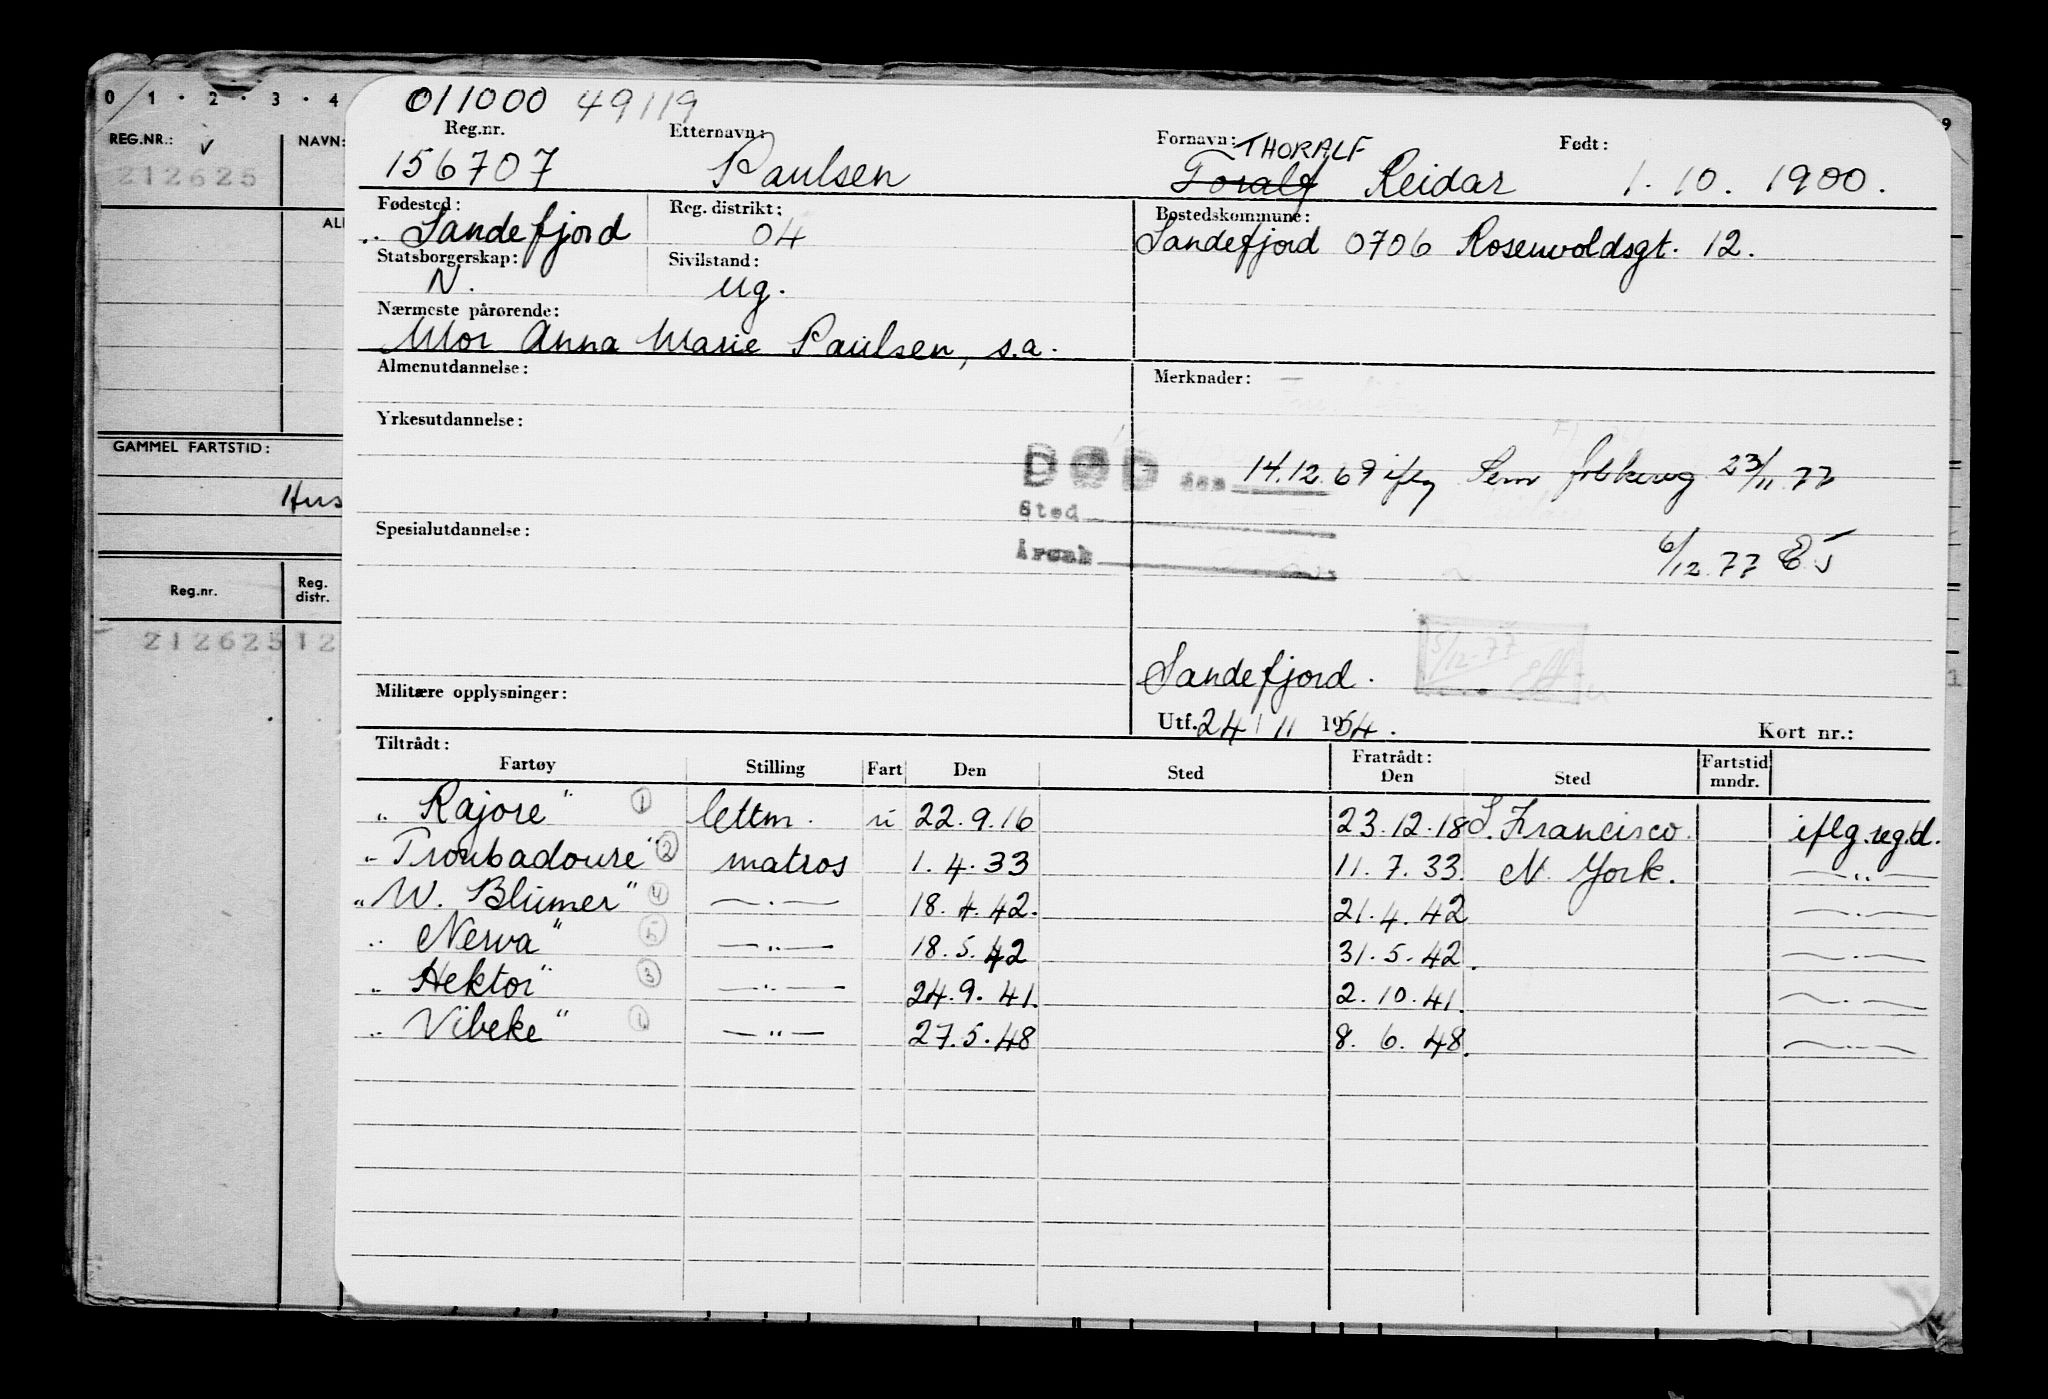 0 1 · 2 · 3 · 4
REG.NR.: NAVN:
212625
GAMMEL FARTSTID:
Hus
Reg.nr. Reg. distr.
212625 12
9
1
011000 49119
Reg.nr. Etternavn: Fornavn: THORALF Født:
156707 Paulsen Toralf Reidar 1.10.1900.
Fødested: Reg. distrikt: Bostedskommune:
Sandefjord 04 Sandefjord 0706 Rosenvoldsgt. 12.
Statsborgerskap: Sivilstand:
N. ug.
Nærmeste pårørende:
Mor Anna Marie Paulsen, s.a.
Almenutdannelse: Merknader: —
Yrkesutdannelse:
DØD den 14.12.69 iflg Sem folkereg 23/11.77
Sted
Årsak
6/12.77 EJ
Spesialutdannelse:
5/12-77
Sandefjord.
Militære opplysninger:
Utf. 24/11 1954. Kort nr.:
Tiltrådt: Fratrådt:
Fartøy Stilling Fart Den Sted Den Sted Fartstid mndr.
„Rajore” 1 lettm. u 22.9.16 23.12.18 S. Francisco. iflg.reg.bl.
„Troubadoure” 2 matros 1.4.33 11.7.33. N. York. —„—
„W. Blumer” 4 —„— 18.4.42. 21.4.42 —„—
„Nerva” 5 —„— 18.5.42 31.5.42. —„—
„Hektor” 3 —„— 24.9.41. 2.10.41. —„—
„Vibeke” 1 —„— 27.5.48 8.6.48. —„—